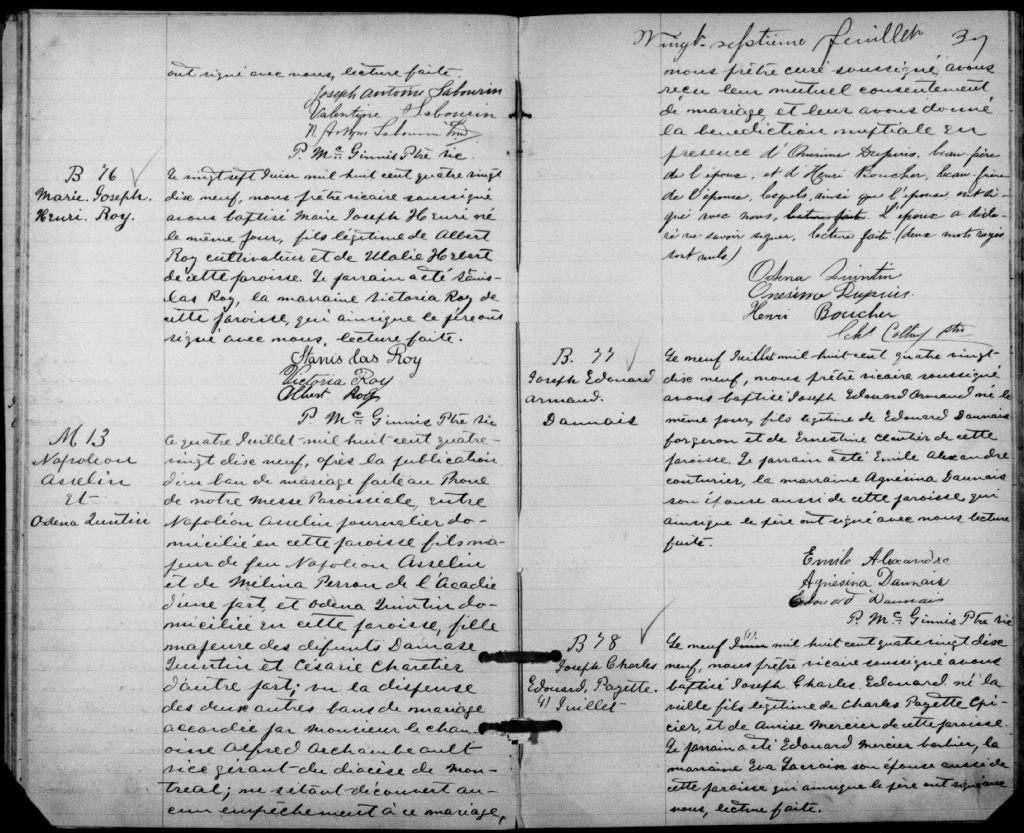 ont signé avec nous, lecture faite.
Joseph Antoine Sabourin
Valentine Sabourin
N. Arthur Sabourin
P. Mc Ginnis Ptre vic
B 76
Marie. Joseph.
Henri. Roy.
Le vingt sept Juin mil huit cent quatre vingt
dix neuf, nous prêtre vicaire soussigné
avons baptisé Marie Joseph Henri né
le même jour, fils légitime de Albert
Roy cultivateur et de Malie Hebert
de cette paroisse. Le parrain a été Stanis-
las Roy, la marraine Victoria Roy de
cette paroisse, qui ainsique le père ont
signé avec nous, lecture faite.
Stanislas Roy
Victoria Roy
Albert Roy
P. Mc Ginnis Ptre vic
M 13
Napoleon
Asselin
Et
Odena Quintin
Le quatre Juillet mil huit cent quatre-
vingt dix neuf, après la publication
d'un ban de mariage faite au Prone
de notre Messe Paroissiale, entre
Napoléon Asselin journalier do-
micilié en cette paroisse fils ma-
jeur de feu Napoléon Asselin
et de Mélina Perron de l'Acadie
d'une part, et Odena Quintin do-
miciliée en cette paroisse, fille
majeure des défunts Damase
Quintin et Césarie Charetier
d'autre part; vu la dispense
des deux autres bans de mariage
accordée par monsieur le chan-
oine Alfred Archambeault
vice gérant du diocèse de Mon-
treal; ne s'étant découvert au-
cun empêchement à ce mariage,
Vingt-septième feuillet 37
nous prêtre curé soussigné, avons
reçu leur mutuel consentement
de mariage, et leur avons donné
la bénédiction nuptiale en
présence d'Onésime Dupuis, beau-frère
de l'époux, et d'Henri Boucher, beau-frère
de l'épouse, lesquels, ainsi que l'épouse ont si-
gné avec nous, lecture faite. L'époux a décla-
ré ne savoir signer, lecture faite. (deux mots rayés
sont nuls)
Odena Quintin
Onesime Dupuis.
Henri Boucher
B. 77
Joseph Edouard
Armand.
Daunais
Le neuf Juillet mil huit cent quatre vingt-
dix neuf, nous prêtre vicaire soussigné
avons baptisé Joseph Edouard Armand né le
même jour, fils légitime de Edouard Daunais
forgeron et de Ernestine Cloutier de cette
paroisse. Le parrain a été Emile Alexandre
couturier, la marraine Agnésina Daunais
son épouse aussi de cette paroisse qui
ainsique le père ont signé avec nous lecture
faite.
Emile Alexandre
Agnésina Daunais
Edouard Daunais
P. Mc Ginnis Ptre vic
B 78
Joseph Charles
Edouard, Payette.
Juillet
Le neuf mil huit cent quatre vingt dix
neuf, nous prêtre vicaire soussigné avons
baptisé Joseph Charles Edouard né la
veille fils légitime de Charles Payette épi-
cier, et de Anrise Mercier de cette paroisse.
Le parrain a été Edouard Mercier barbier, la
marraine Eva Lacroix son épouse aussi de
cette paroisse qui ainsique le père ont signé avec
nous, lecture faite.